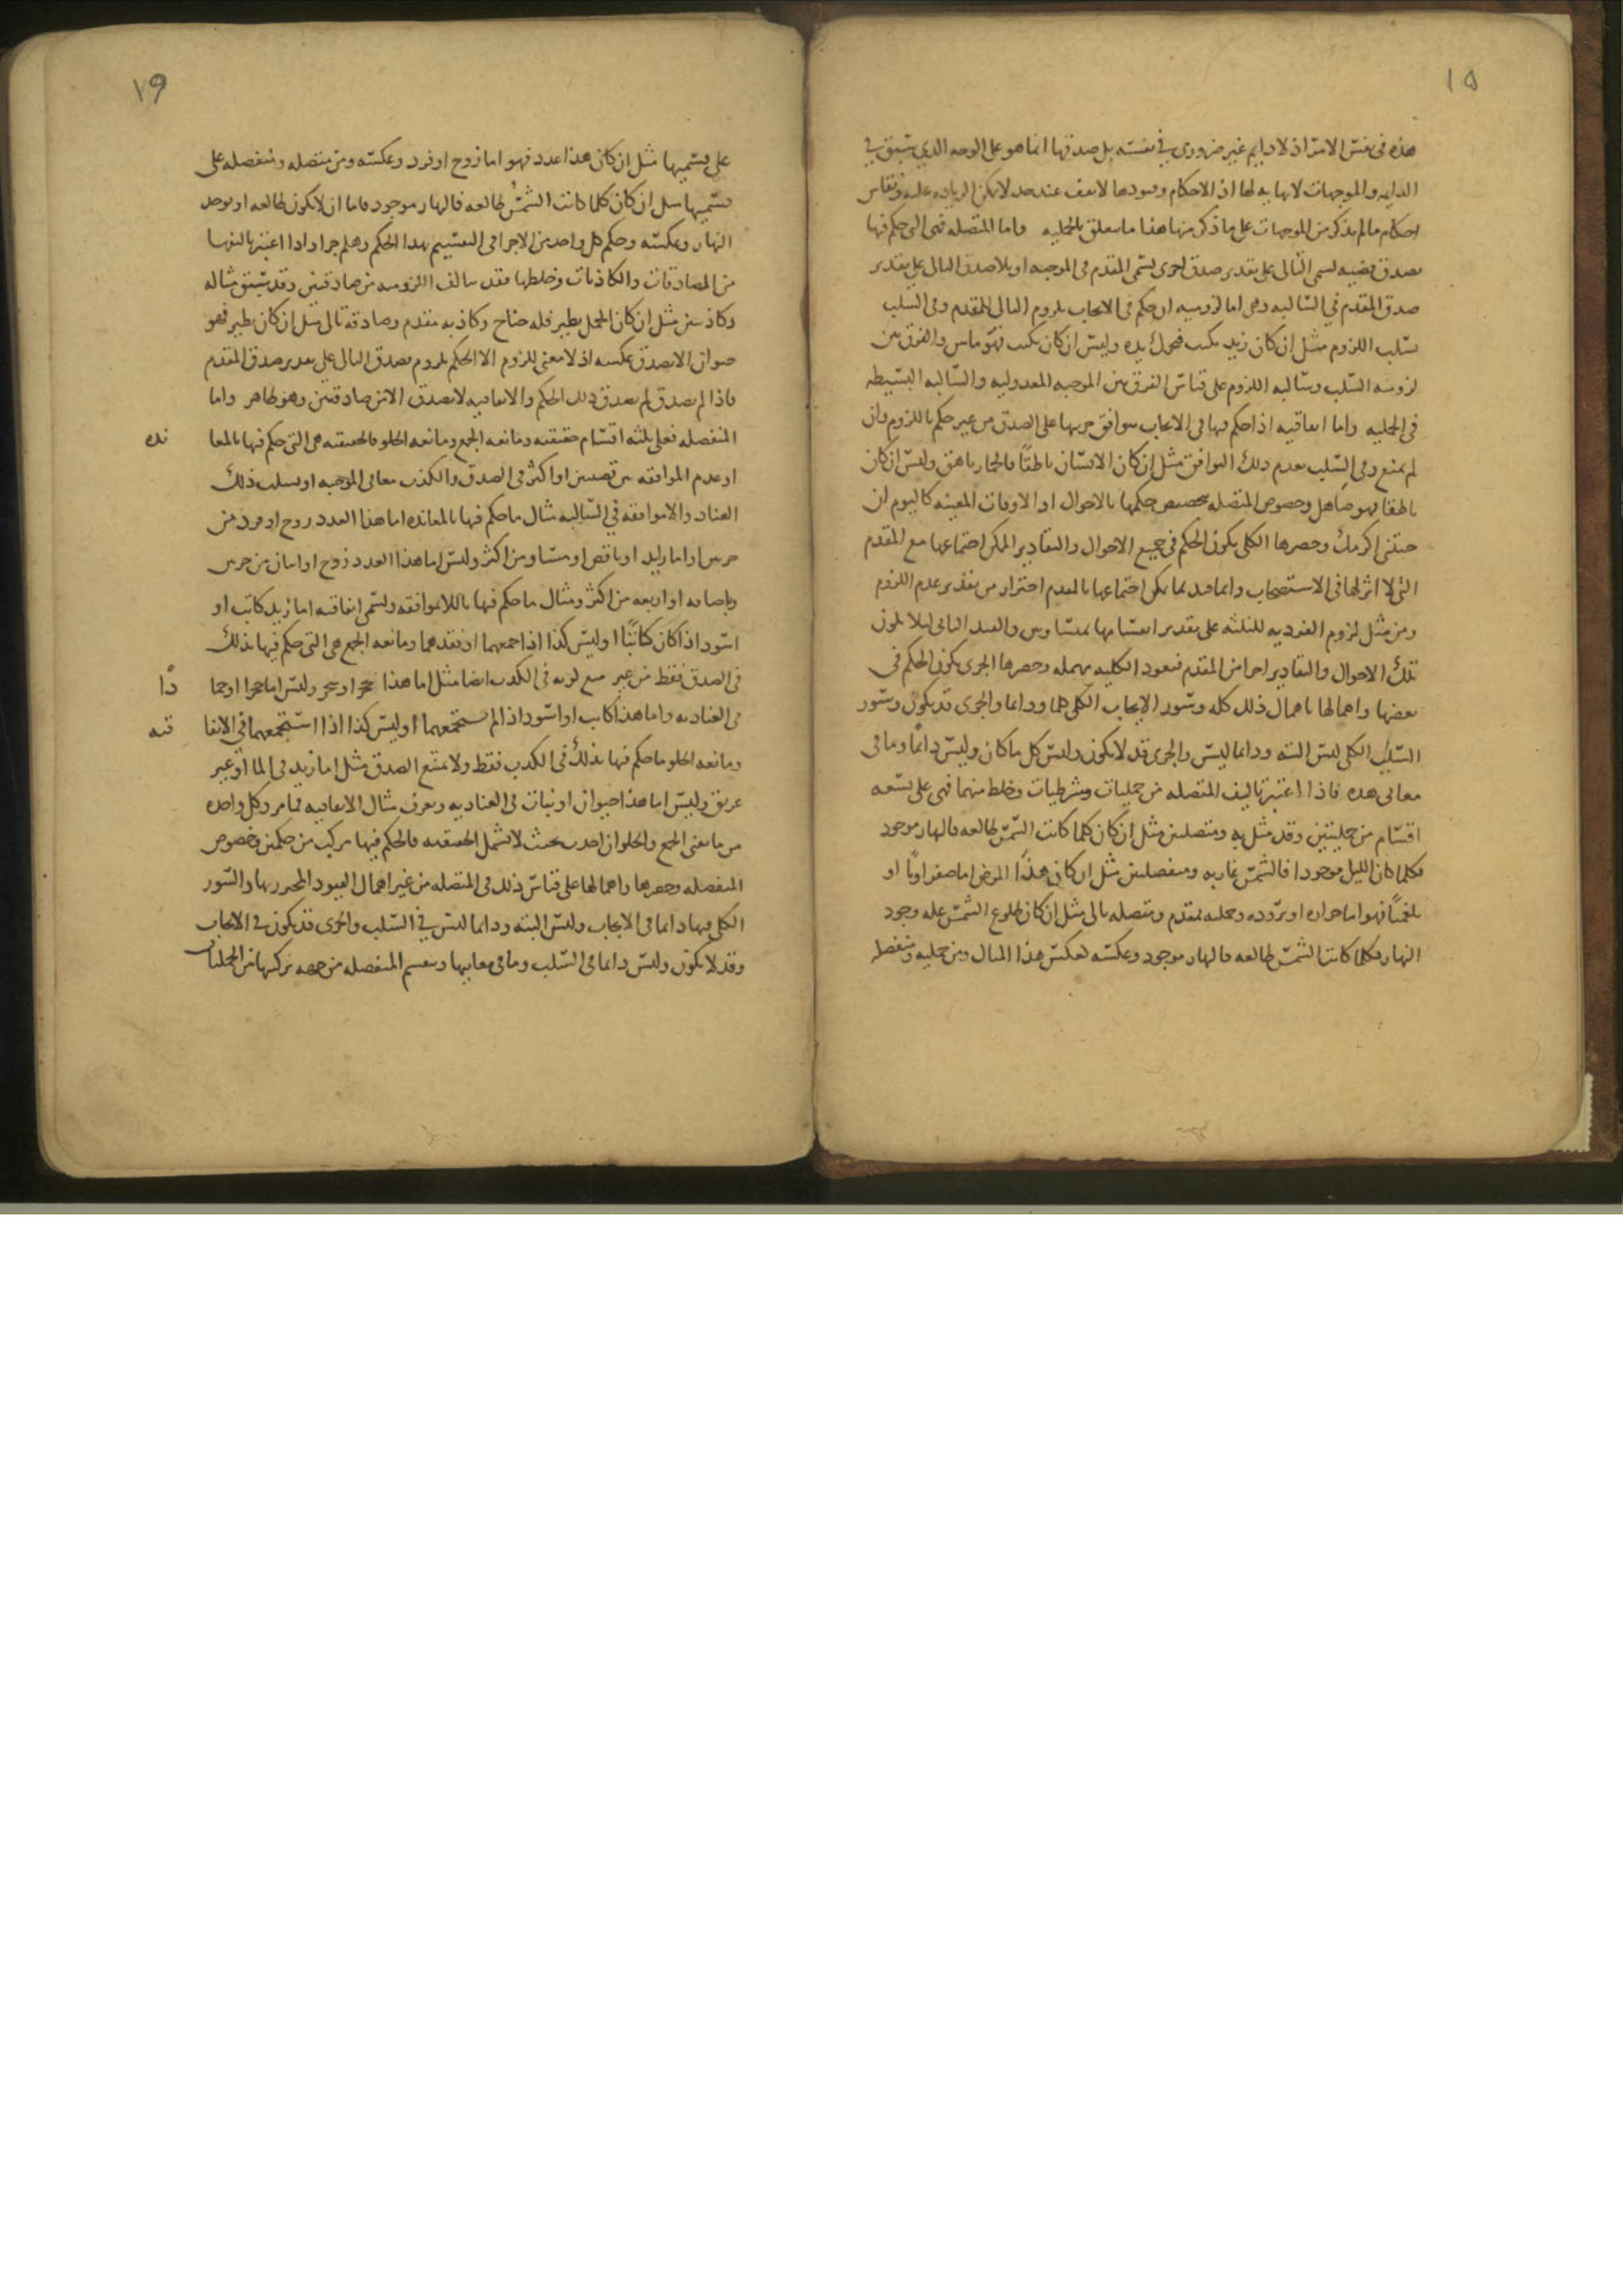 ١٥
هذه فى نفس الامر اذ لا دايم غير ضرورى فى نفسه بل صدقها انما هو على الوجه الذى سبق فى
الدايمه والموجهات لا نهايه لها اذ الاحكام وقيودها لا تقف عند حد لا يمكن الزياده عليه وتقاس
احكام ما لم يذكر من الموجهات على ما ذكر منها هذا ما يتعلق بالحمليه واما المتصله فهى التى حكم فيها
بصدق قضيه تسمى التالى على تقدير صدق اخرى تسمى المقدم فى الموجبه او بلا صدق التالى على تقدير
صدق المقدم فى السالبه وهى اما لزوميه ان حكم فى الايجاب بلزوم التالى للمقدم وفى السلب
بسلب اللزوم مثل ان كان زيد يكتب فيحرك يده وليس ان كان يكتب فهو ماش والفرق بين
لزوميه السلب وسالبه اللزوم على قياس الفرق بين الموجبه المعدوليه والسالبه البسيطه
فى الحمليه واما اتفاقيه اذا حكم فيها فى الايجاب بتوافق جزيها على الصدق من غير حكم باللزوم وان
لم يمنع وفى السلب بعدم ذلك التوافق مثل ان كان الانسان ناطقا فالحمار ناهق وليس ان كان
ناطقا فهو صاهل وخصوص المتصله بتخصيص حكمها بالاحوال او الاوقات المعينه كاليوم ان
جئتنى اكرمك وحصرها الكلى بكون الحكم فى جميع الاحوال والتقادير الممكن اجتماعها مع المقدم
التى لا اثر لها فى الاستصحاب وانما قيد بما يمكن اجتماعها بالمقدم احترازا من تقدير عدم اللزوم
ومن مثل لزوم الفرديه للثلثه على تقدير انقسامها بمتساويين والقيد الثانى ليلا يكون
تلك الاحوال والتقادير اجزا من المقدم فتعود الكليه مهمله وحصرها الجزى بكون الحكم فى
بعضها واهمالها باهمال ذلك كله وسور الايجاب الكلى كلما ودايما والجزى قد يكون وسور
السلب الكلى ليس البته ودايما ليس والجزى قد لا يكون وليس كل ما كان وليس دايما وما فى
معانى هذه فاذا اعتبر تاليف المتصله من حمليات وشرطيات وخلط منهما فهى على تسعه
اقسام من حمليتين وقد مثل به ومتصلتين مثل ان كان كلما كانت الشمس طالعه فالنهار موجود
فكلما كان الليل موجودا فالشمس غاربه ومنفصلتين مثل ان كان هذا المرض اما صفراويا او
بلغميا فهو اما حراره او بروده وحمليه بمقدم ومتصله تالى مثل ان كان طلوع الشمس عله وجود
النهار فكلما كانت الشمس طالعه فالنهار موجود وعكسه كعكس هذا المثال ومن حمليه ومنفصله
١٩
على قسميها مثل ان كان هذا عدد فهو اما زوج او فرد وعكسه ومن متصله ومنفصله على
قسميها مثل ان كان كلما كانت الشمس طالعه فالنهار موجود فاما ان لا يكون طالعه او يوجد
النهار وعكسه وحكم كل واحد من الاجزا فى التقسيم بهذا الحكم وهلم جرا واذا اعتبر تاليفها
من الصادقات والكاذبات وخلطها فقد يتالف اللزوميه من صادقتين وقد سبق مثاله
وكاذبتين مثل ان كان الجمل يطير فله جناح وكاذبه مقدم وصادقه تالى مثل ان كان يطير فهو
حيوان الا يصدق عكسه اذ لا معنى للزوم الا الحكم بلزوم صدق التالى على تقدير صدق المقدم
فاذا لم يصدق لم يصدق ذلك الحكم والاتفاقيه لا تصدق الا من صادقتين وهو ظاهر واما
المنفصله فعلى ثلثه اقسام حقيقيه ومانعه الجمع ومانعه الخلو فالحقيقيه هى التى حكم فيها بالمعا
نده
او عدم الموافقه بين قضيتين او اكثر فى الصدق والكذب معا فى الموجبه او بسلب ذلك
العناد واللاموافقه فى السالبه مثال ما حكم فيها بالمعانده اما هذا العدد زوج او فرد من
جزين او اما زايد او ناقص او مساو من اكثر وليس اما هذا العدد زوج او اثنان من جزين
وباضافه او اربعه من اكثر ومثال ما حكم فيها باللاموافقه وتسمى اتفاقيه اما زيد كاتب او
اسود اذا كان كاتبا او ليس كذا اذا جمعهما او فقدهما ومانعه الجمع هى التى حكم فيها بذلك
فى الصدق فقط من غير منع لزومه فى الكذب ايضا مثل اما هذا شجر او حجر وليس اما حجرا او جما
دًا
فى العناديه واما هذا كاتب او اسود اذا لم يستجمعهما او ليس كذا اذا استجمعهما فى الاتفا
قيه
ومانعه الخلو ما حكم فيها بذلك فى الكذب فقط ولا يمتنع الصدق مثل اما زيد فى الما او غير
غريق وليس اما هذا حيوان او نبات فى العناديه ويعرف مثال الاتفاقيه مما مر وكل واحده
من مانعتى الجمع والخلو ان اخذت بحيث لا تشمل الحقيقيه فالحكم فيها مركب من حكمين وخصوص
المنفصله وحصرها واهمالها على قياس ذلك فى المتصله من غير اهمال القيود المحرر بها والسور
الكلى فيها دايما فى الايجاب وليس البته ودايما ليس فى السلب والجزى قد يكون فى الايجاب
وقد لا يكون وليس دايما فى السلب وما فى معانيها وتنقسم المنفصله من جهه تركيبها من الحمليات